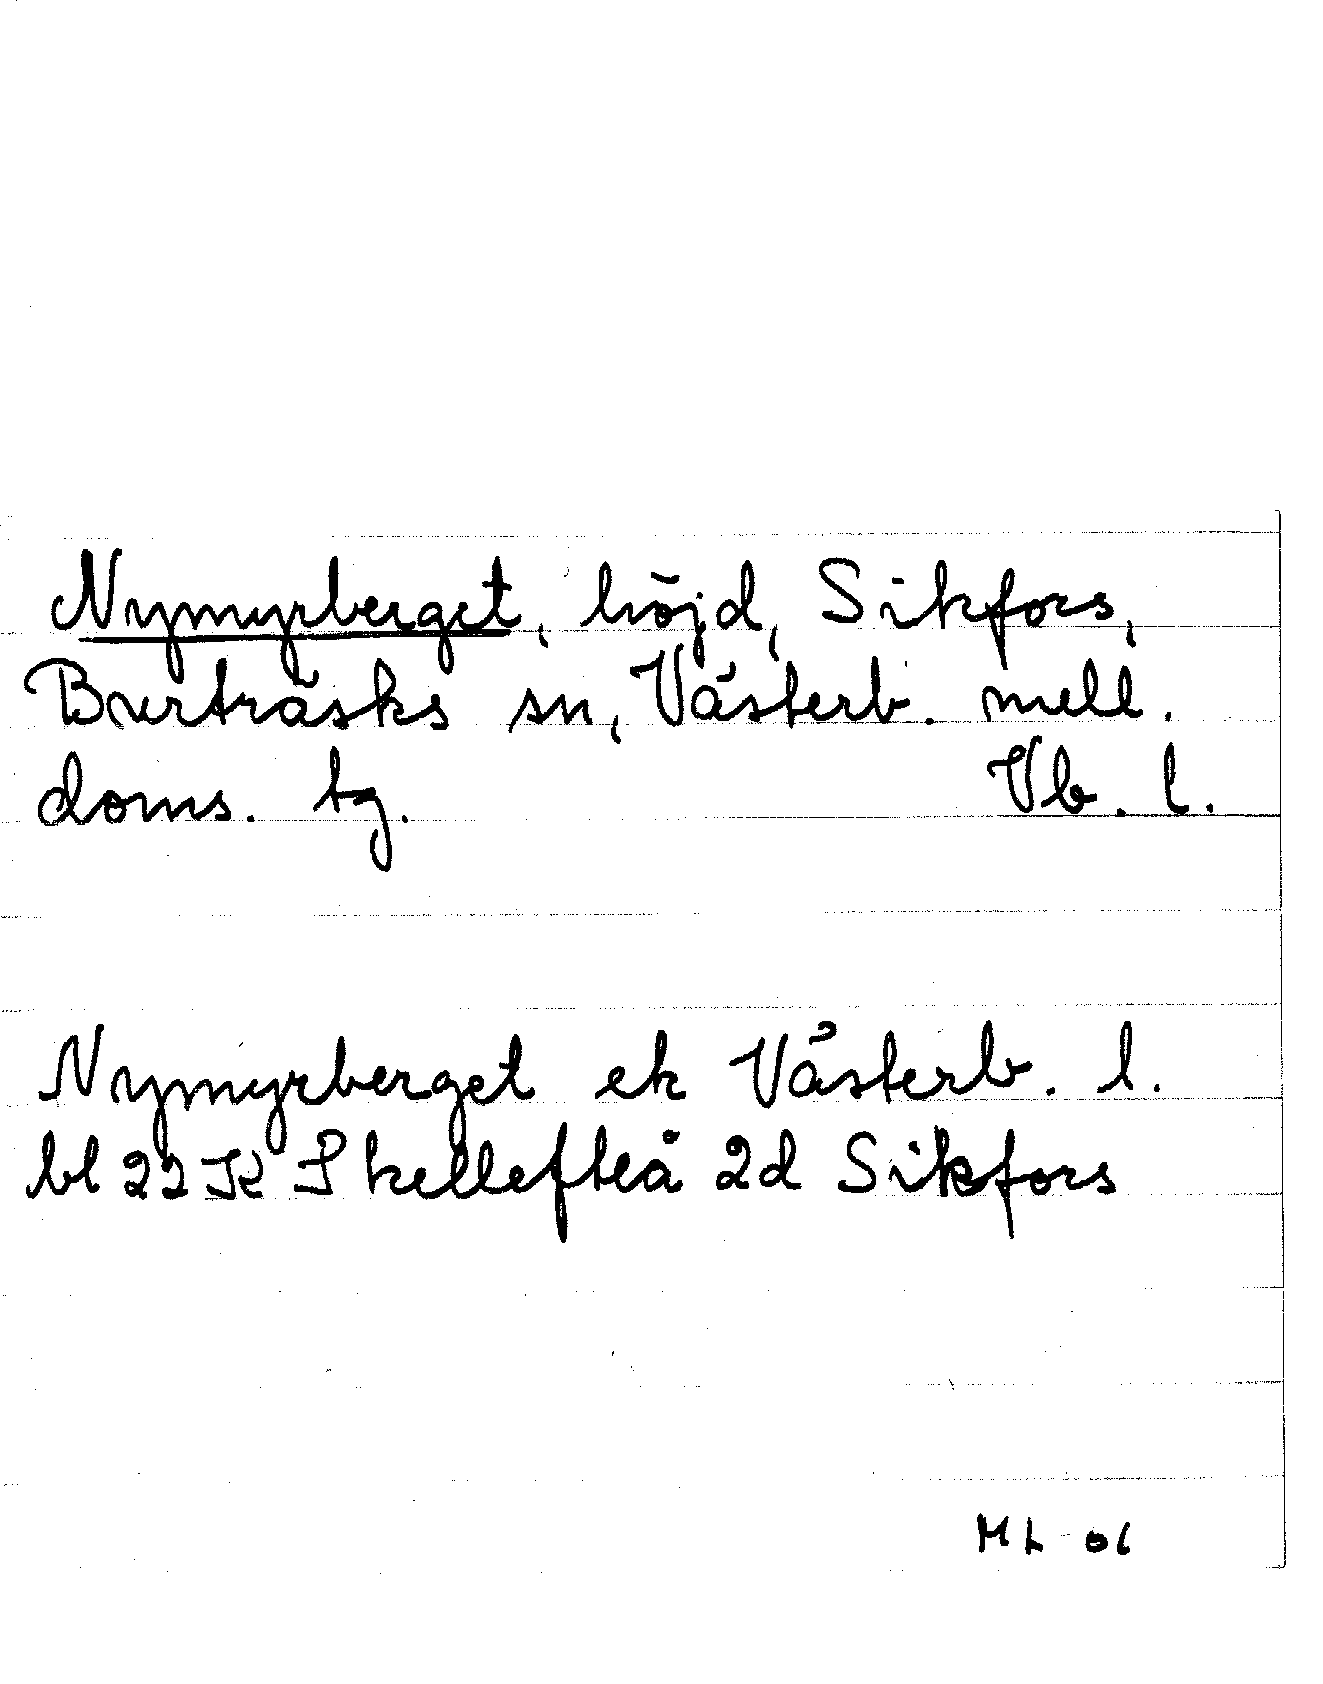 Nymyrberget, höjd, Sikfors,
Burträsks sn, Västerb. mell.
doms. tg. Vb. l.
Nymyrberget ek Västerb. l.
bl 22 K Skellefteå 2d Sikfors
ML 06